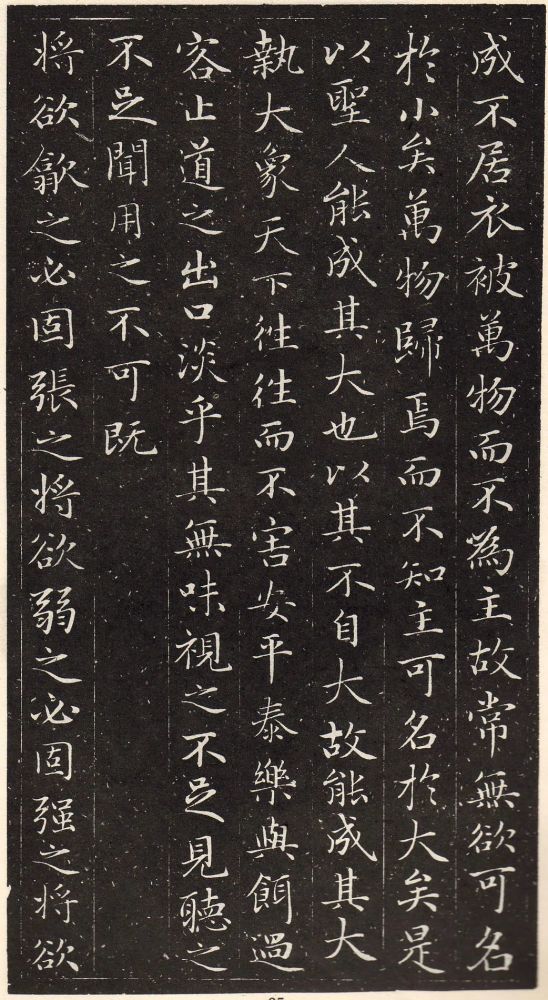 成不居衣被萬物而不為主故常無欲可名
於小矣萬物歸焉而不知主可名於大矣是
以聖人能成其大也以其不自大故能成其大
執大象天下往往而不害安平泰樂與餌過
容止道之出口淡乎其無味視之不足見聽之
不足聞用之不可既
將欲歙之必固張之將欲弱之必固强之將欲